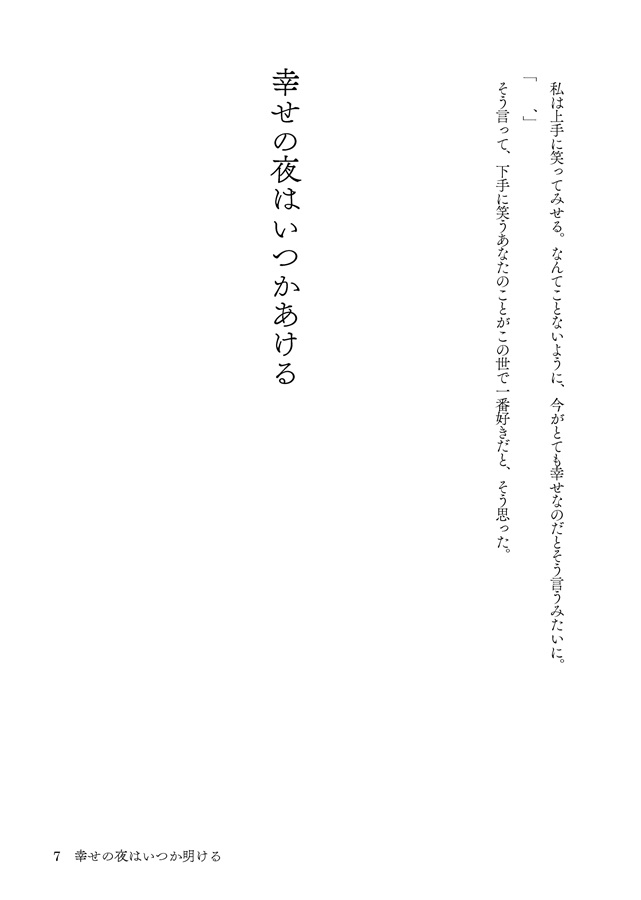 私は上手に笑ってみせる。なんてことないように、今がとても幸せなのだとそう言うみたいに。
「　、」
そう言って、下手に笑うあなたのことがこの世で一番好きだと、そう思った。
幸せの夜はいつかあける
7　幸せの夜はいつか明ける